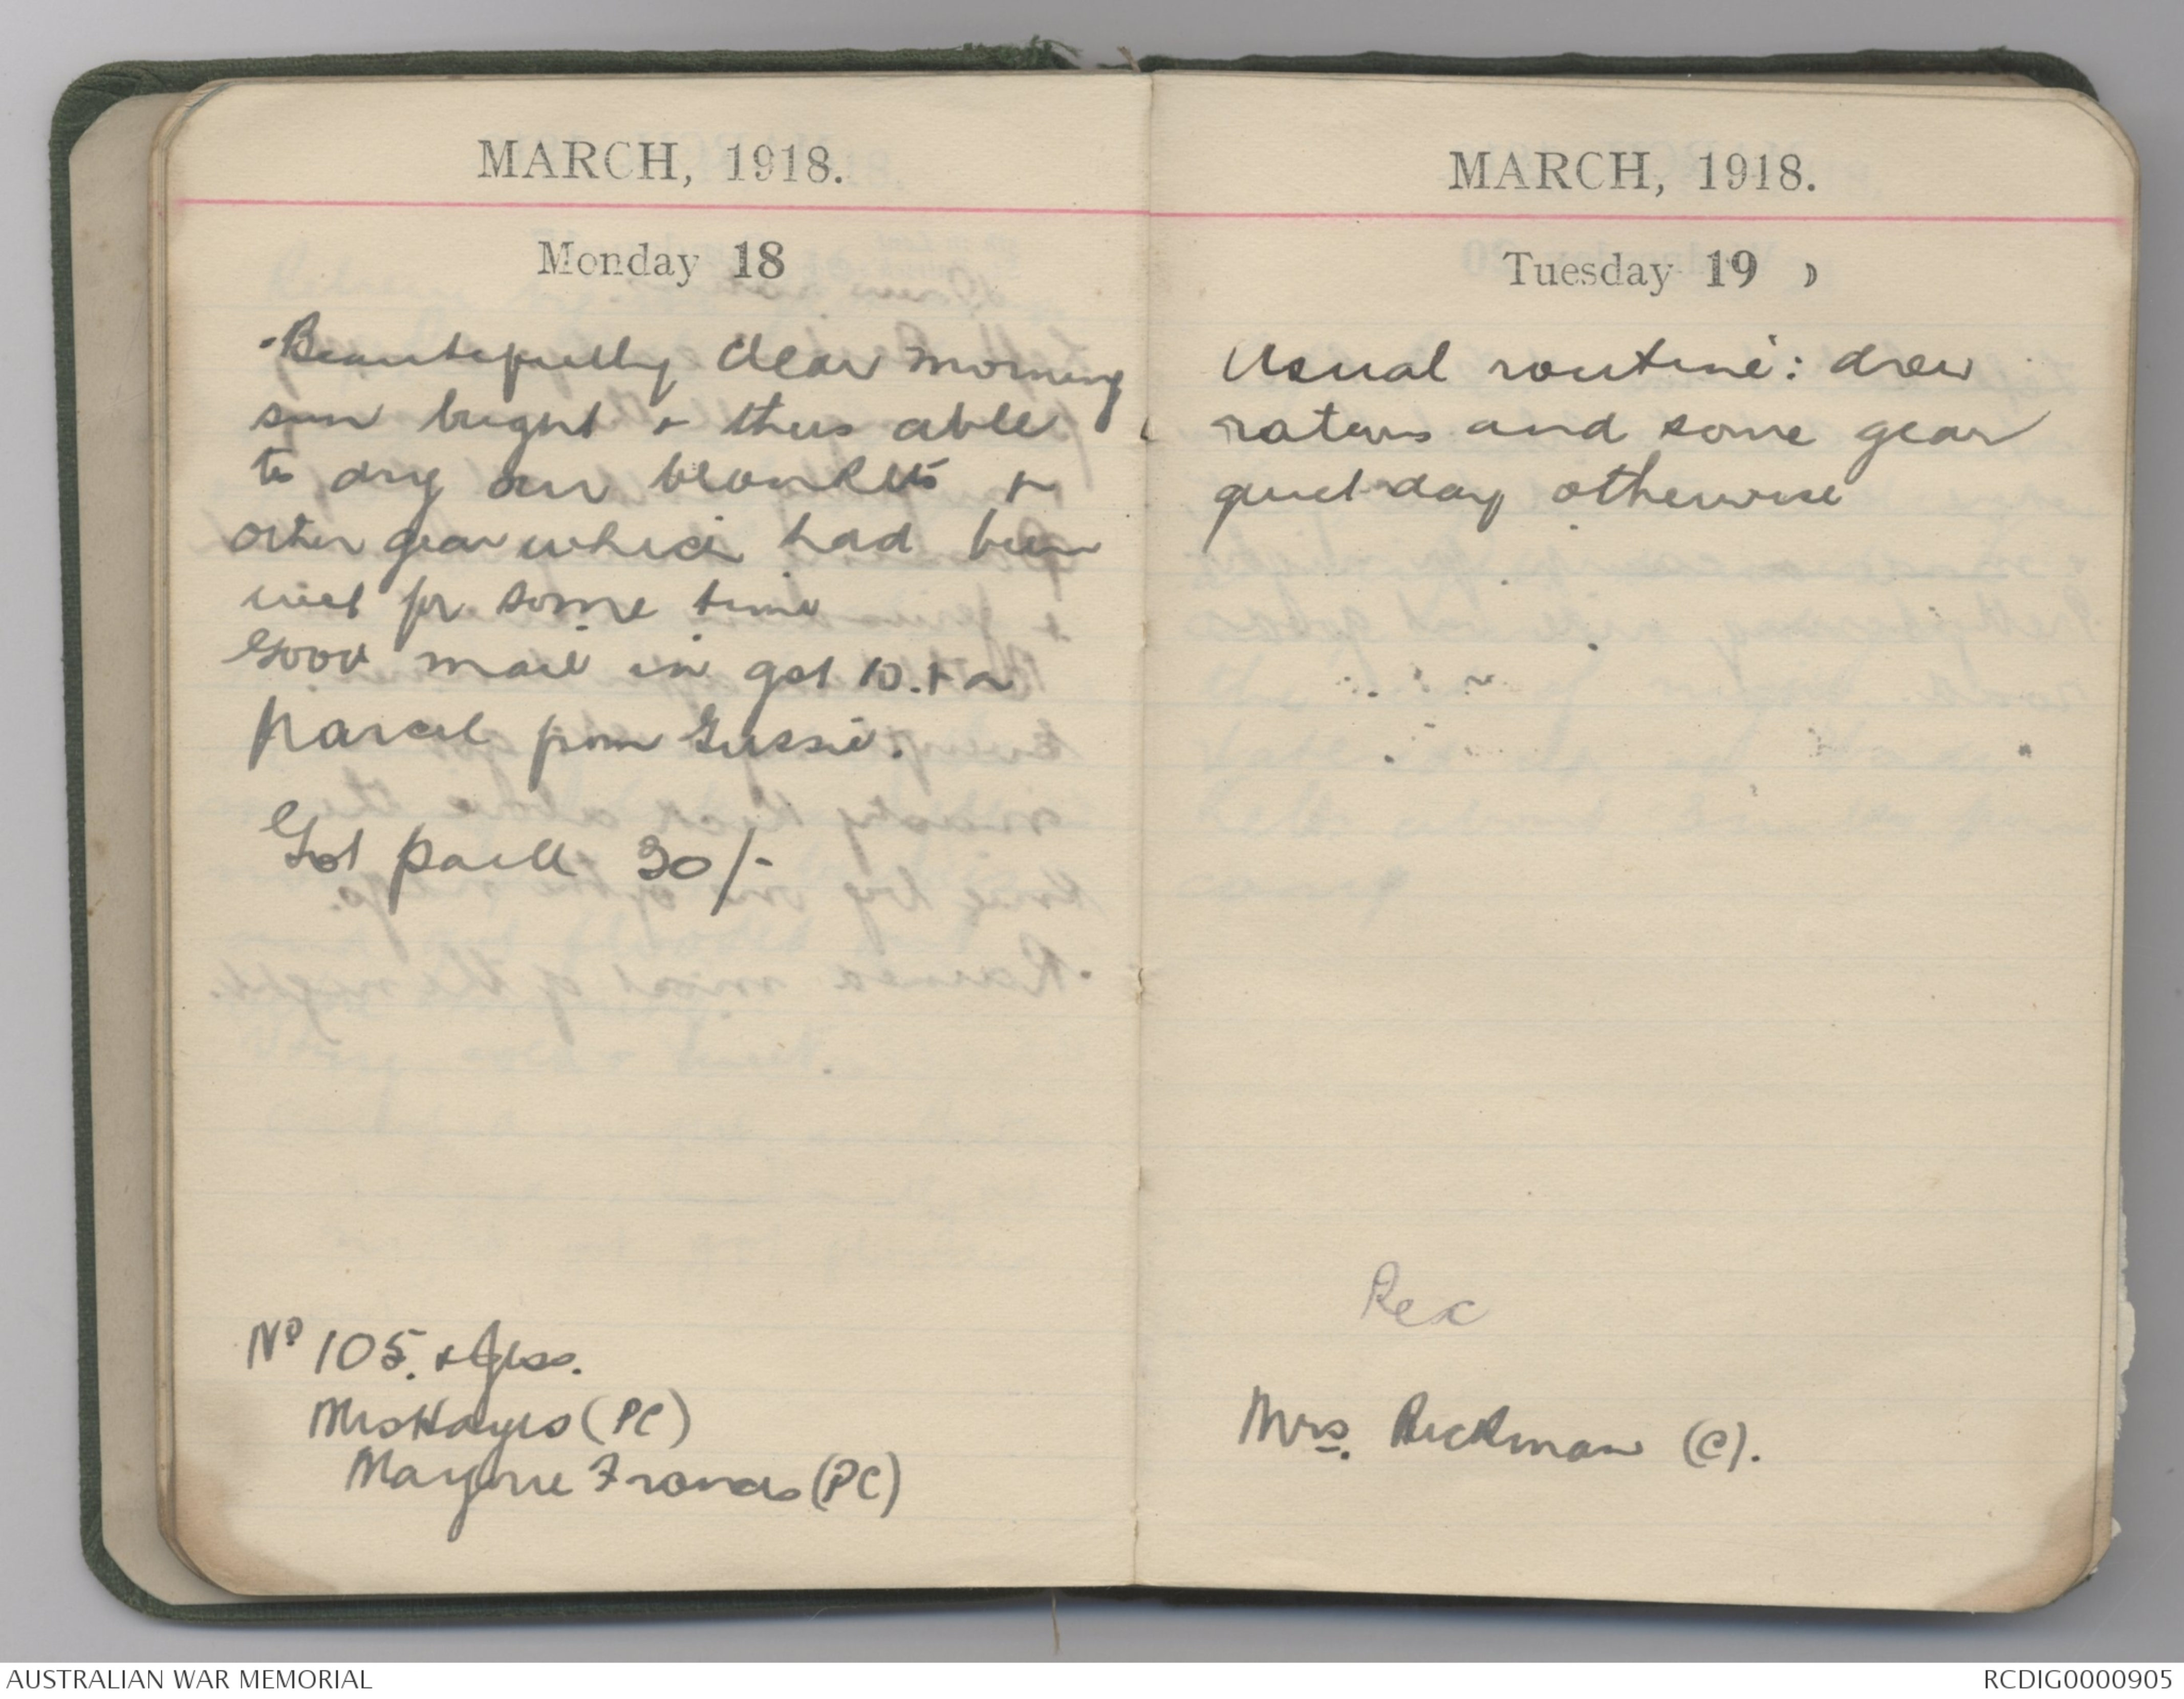 MARCH, 1918.
Monday 18
Beautifully clear morning
sun bright & thus able
to dry our blankets &
other gear which had been
wet for some time
Good mail in got 10. & a
parcel from Gussie.
Got paid 30/-
No 105. & Jess.
Mrs Hayes (PC)
Marjorie Francis (PC)
MARCH, 1918.
Tuesday 19
Usual routine: drew
rations and some gear
quiet day otherwise
Rex
Mrs. Rickman (C).
AUSTRALIAN WAR MEMORIAL
RCDIG0000905